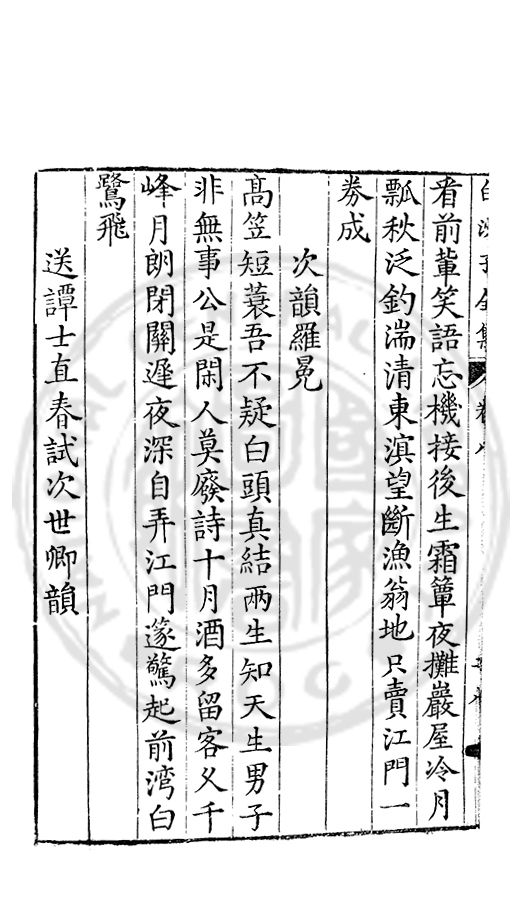 白沙子全集 卷八
看前輩笑語忘機接後生霜簞夜攤巖屋冷月
瓢秋泛釣湍清東滇望斷漁翁地只賣江門一
券成
次韻羅冕
高笠短蓑吾不疑白頭真結兩生知天生男子
非無事公是閑人莫廢詩十月酒多留客久千
峰月朗閉關遲夜深自弄江門篴驚起前湾白
鷺飛
送譚士直春試次世卿韻